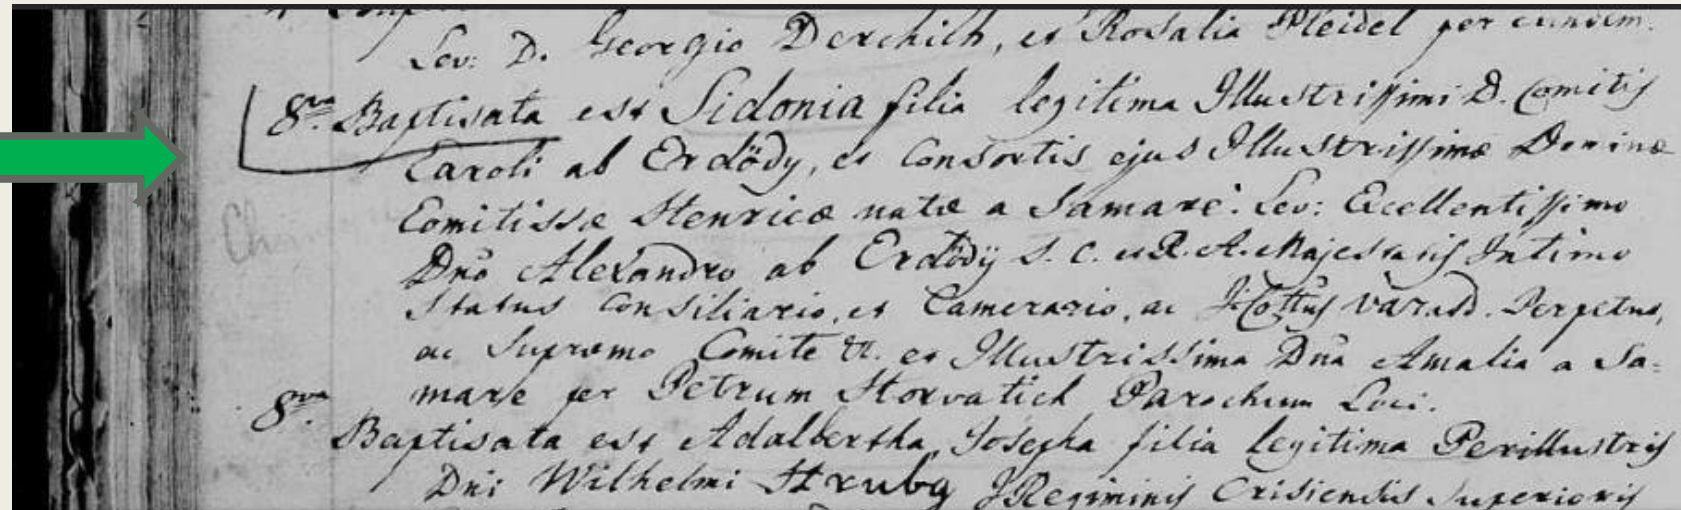 Lev: D. Georgio Derchich, et Rosalia Pleidel per eundem.
8va Baptisata est Sidonia filia legitima Illustrissimi D. Comitis
Caroli ab Erdödy, et Consortis ejus Illustrissimæ Dominæ
Comitissæ Henricæ natæ a Samare. Lev: Excellentissimo
Dno Alexandro ab Erdödÿ S. C. et R. A. Majestatis Intimo
Status Consiliario, et Camerario, ac I. Cottus Varasd. Perpetuo,
ac Supremo Comite &. et Illustrissima Dna Amalia a Sa-
mare per Petrum Horvatich Parochum Loci.
8va
Baptisata est Adalbertha Josepha filia legitima Perillustris
Dni Wilhelmi I Regiminis Crisiensis Superioris